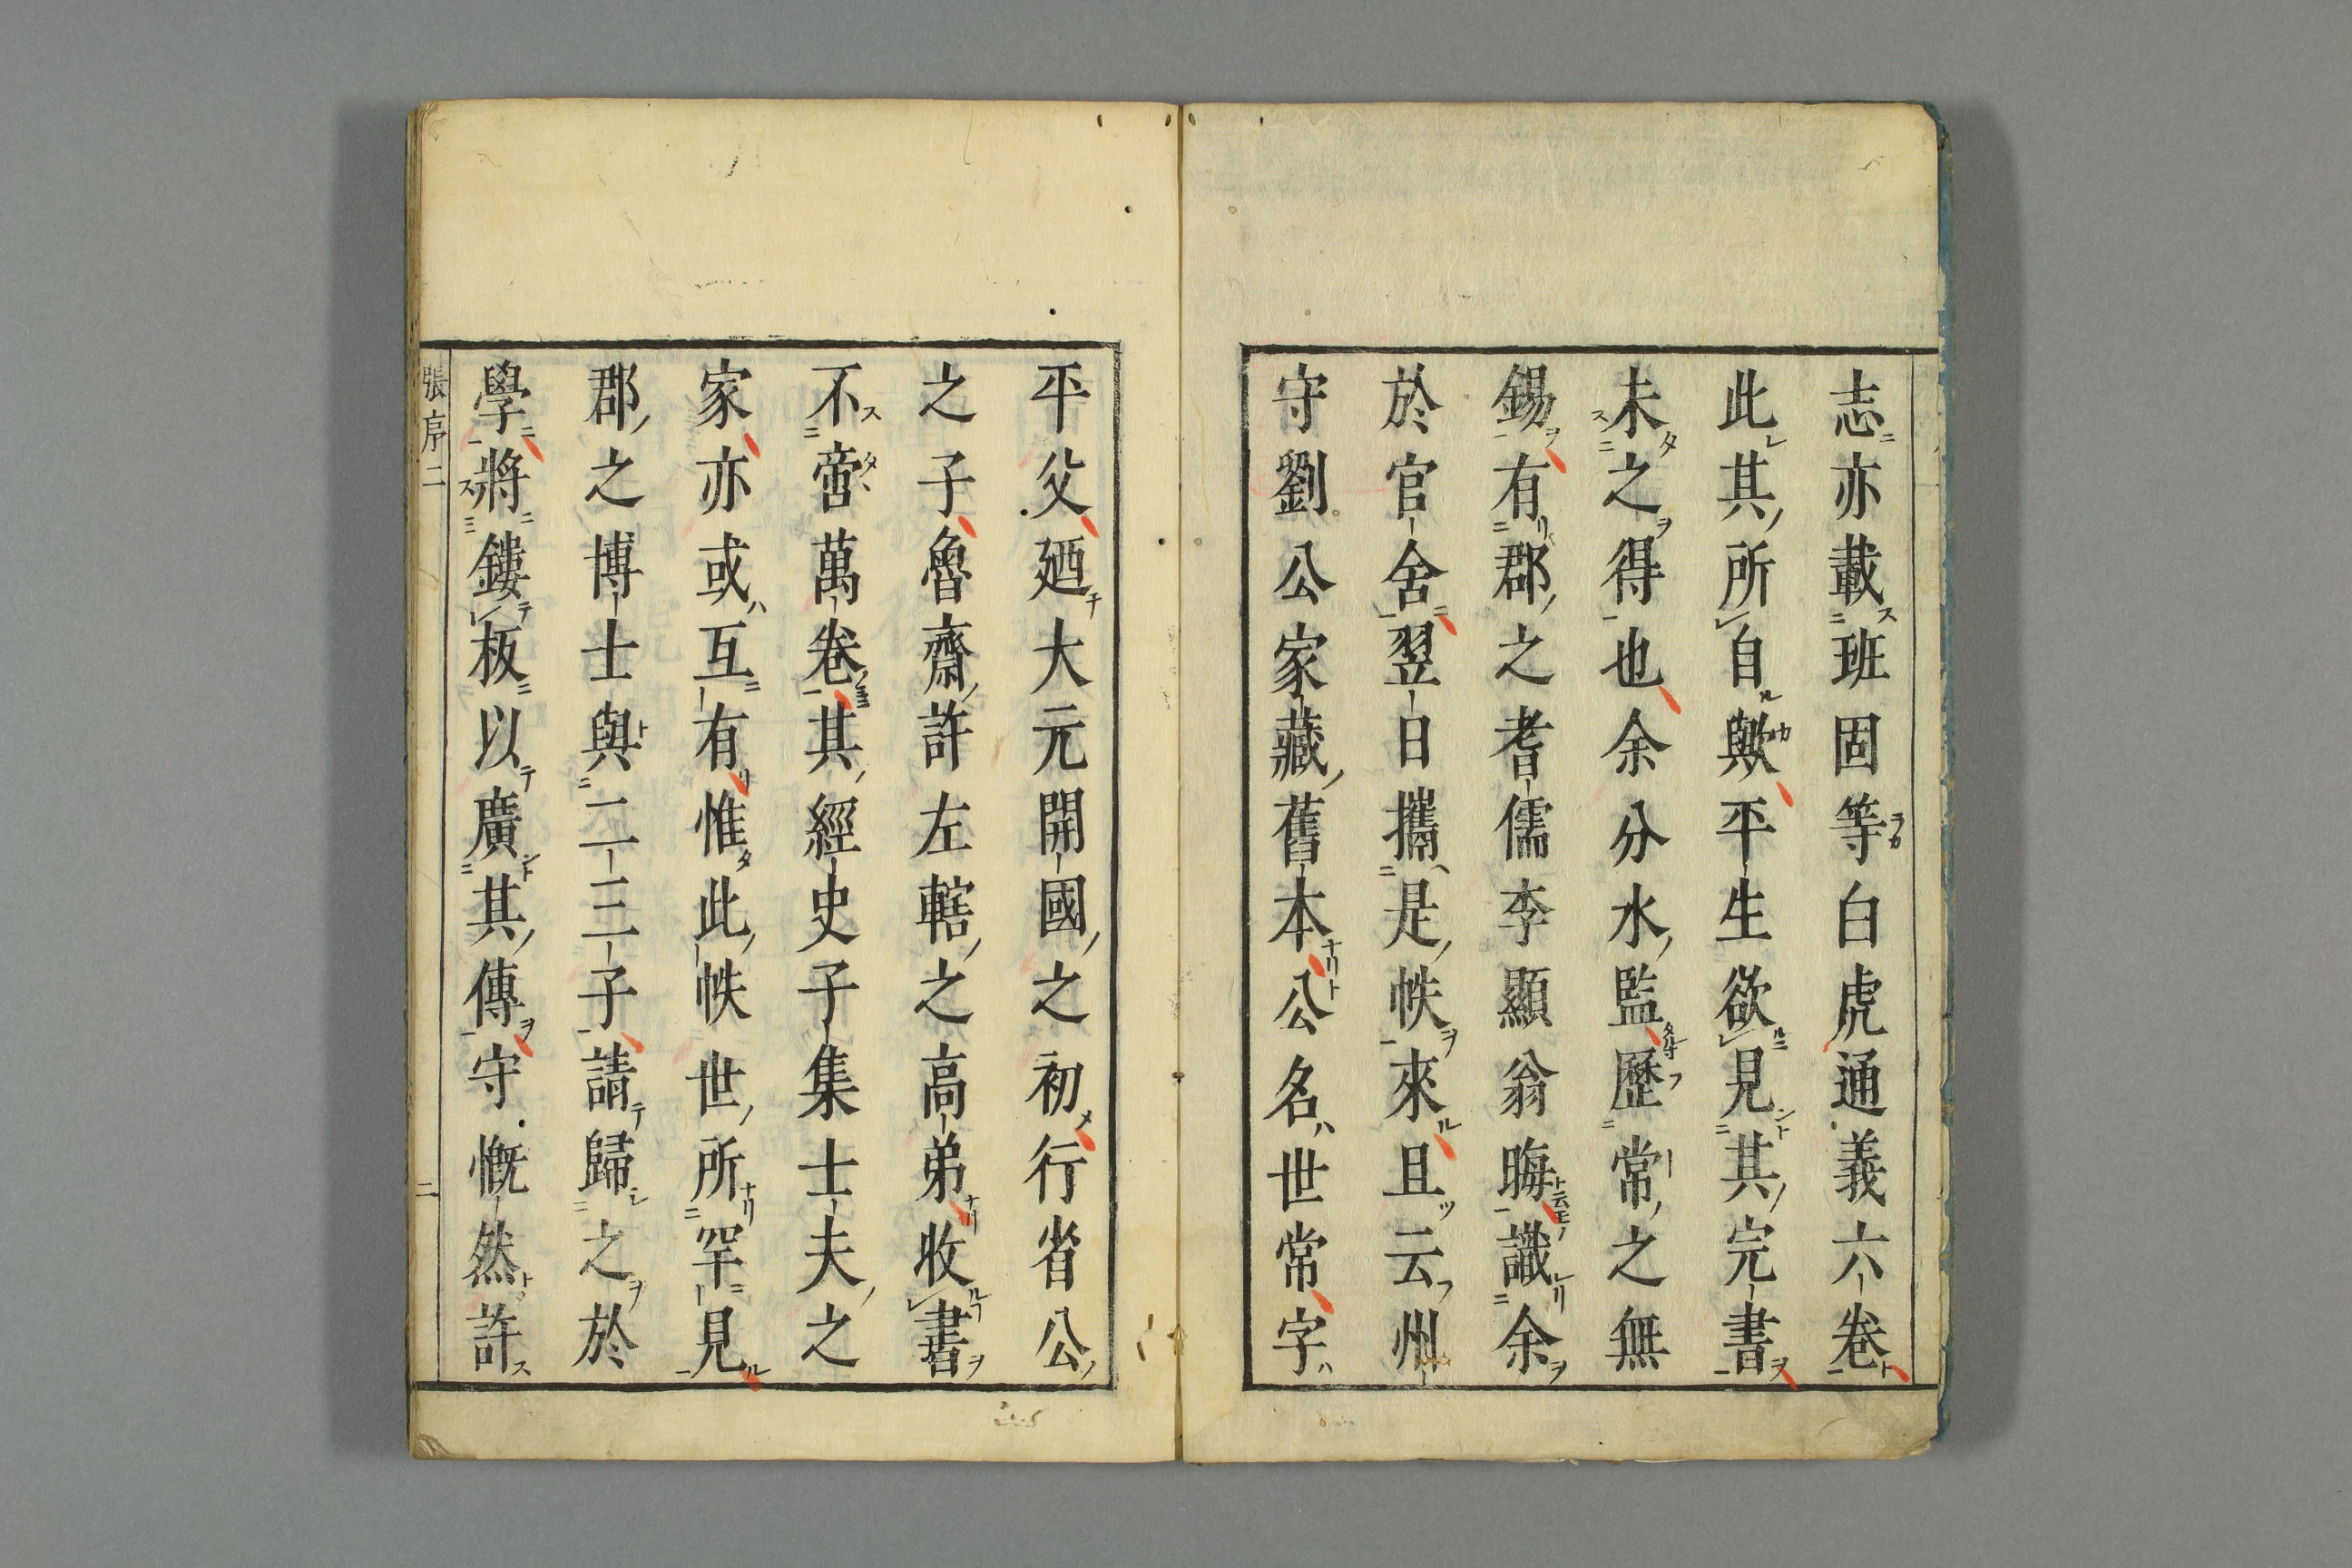 志亦載班固等白虎通義六卷
此其所自歟平生欲見其完書
未之得也余分水監歷常之無
錫有郡之耆儒李顯翁晦識余
於官舍翌日攜是帙來且云州
守劉公家藏舊本公名世常字
平父廼大元開國之初行省公
之子魯齋許左轄之高弟收書
不啻萬卷其經史子集士夫之
家亦或互有惟此帙世所罕見
郡之博士與二三子請歸之於
學將鏤板以廣其傳守慨然許
張序二 二